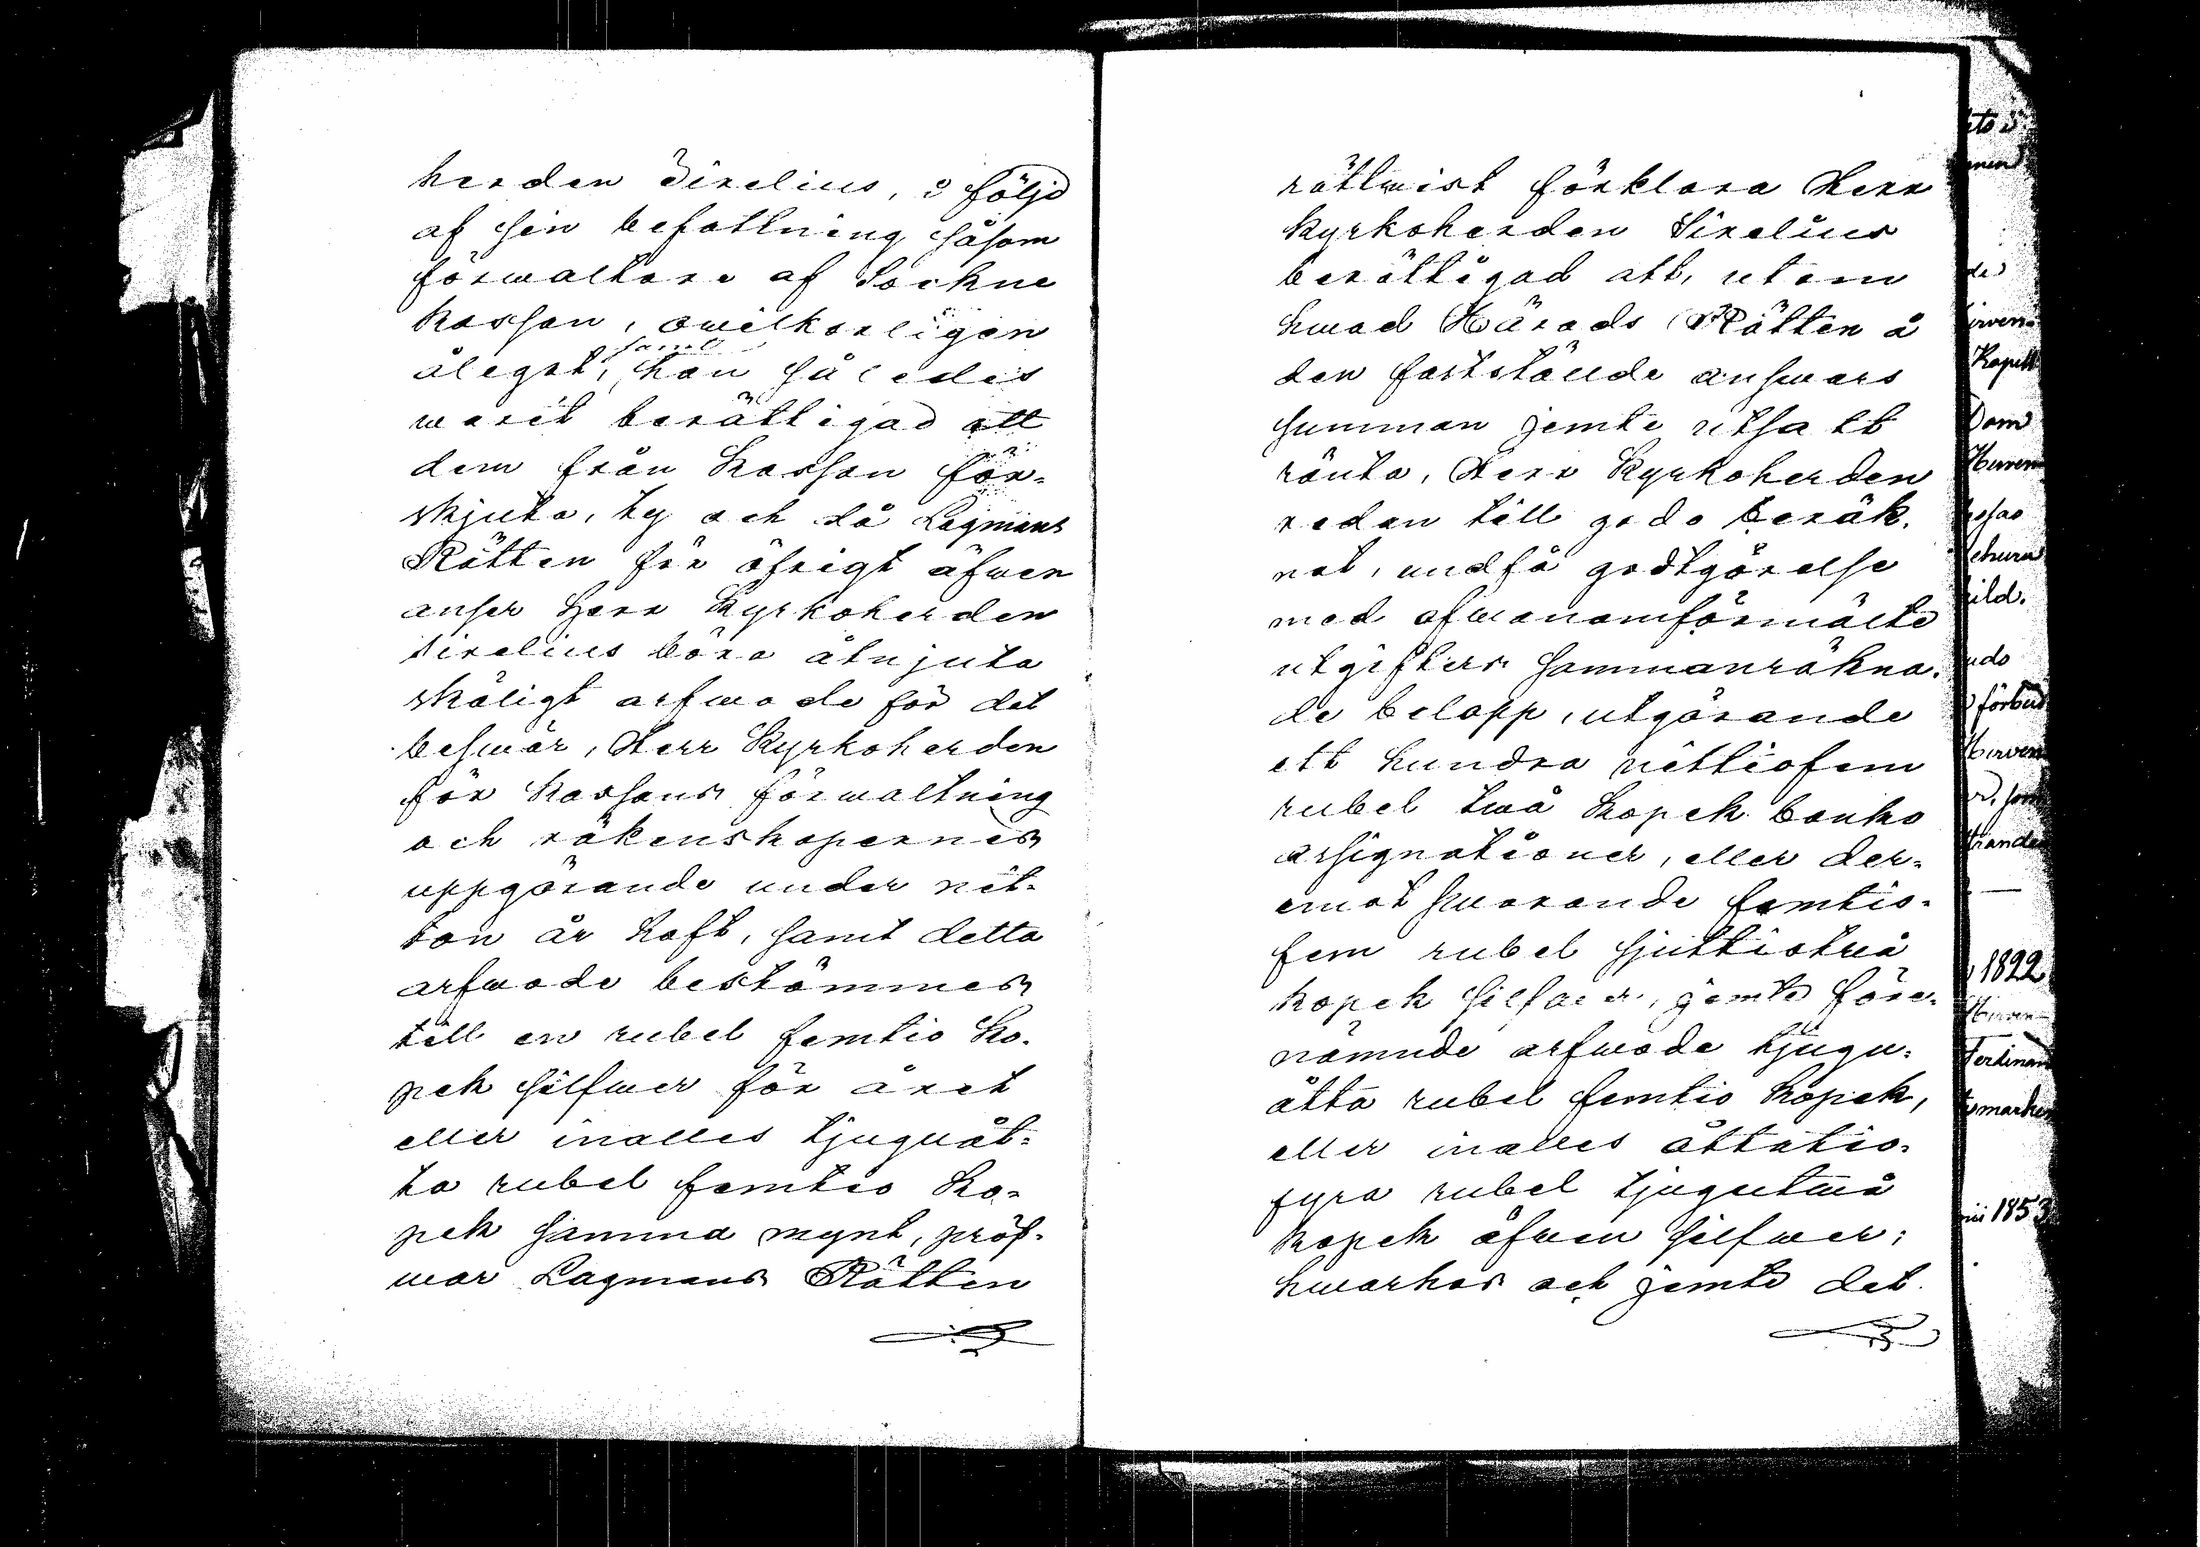 herden Sirelius, i följd
af sin befattning såsom
förwaltare af Sockne
kassan, owilkorligen
ålegat, samt han således
warit berättigad att
dem från kassan för-
skjuta, ty och då Lagmans
Rätten för öfrigt äfwen
anser Herr Kyrkoherden
Sirelius böra åtnjuta
skäligt arfwode för det
beswär, Herr Kyrkoherden
för kassans förwaltning
och räkenskapernes
uppgörande under nit-
ton år haft, samt detta
arfwode bestämmes
till en rubel femtio ko-
pek silfwer för året
eller inalles tjuguåt-
ta rubel femtio ko-
pek samma mynt, pröf-
war Lagmans Rätten
rättwist förklara Herr
Kyrkoherden Sirelius
berättigad att, utom
hwad Härads Rätten å
den fastställde answars
summan jemte utsatt
ränta, Herr Kyrkoherden
redan till godo beräk-
nat, undfå godtgörelse
med ofwananförmälte
utgifters sammanräkna-
de belopp, utgörande
ett hundra nittiofem
rubel twå kopek banko
assignationer, eller der-
emot swarande femtio-
fem rubel sjuttiotwå
kopek silfwer, jemte före-
nämnde arfwode tjugu-
åtta rubel femtio kopek,
eller inalles åttatio-
fyra rubel tjugutwå
kopek äfwen silfwer;
hwarhos och jemte det
Kapell
Dom
förbud
1822
Ferdinand
1853